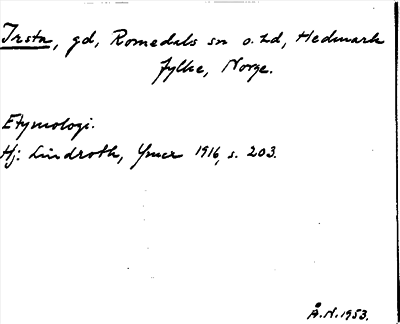 Irsta, gd, Romedals sn o. hd, Hedmark
fylke, Norge.
Etymologi.
Hj: Lindroth, Ymer 1916, s. 203.
Å.N. 1953.